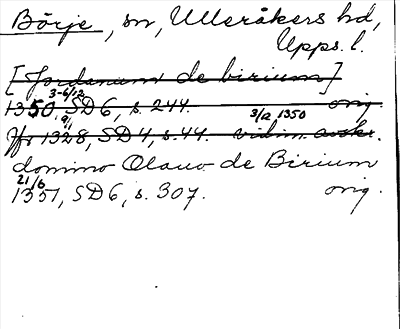 Börje, sn, Ulleråkers hd,
Upps. l.
[Jordanum de birium]
3-6/12
1350, SD 6, s. 244. orig.
9/1 3/12 1350
Jfr 1328, SD 4, s. 44. vidim. avskr.
domino Olauo de Birium
21/6
1351, SD 6, s. 307. orig.